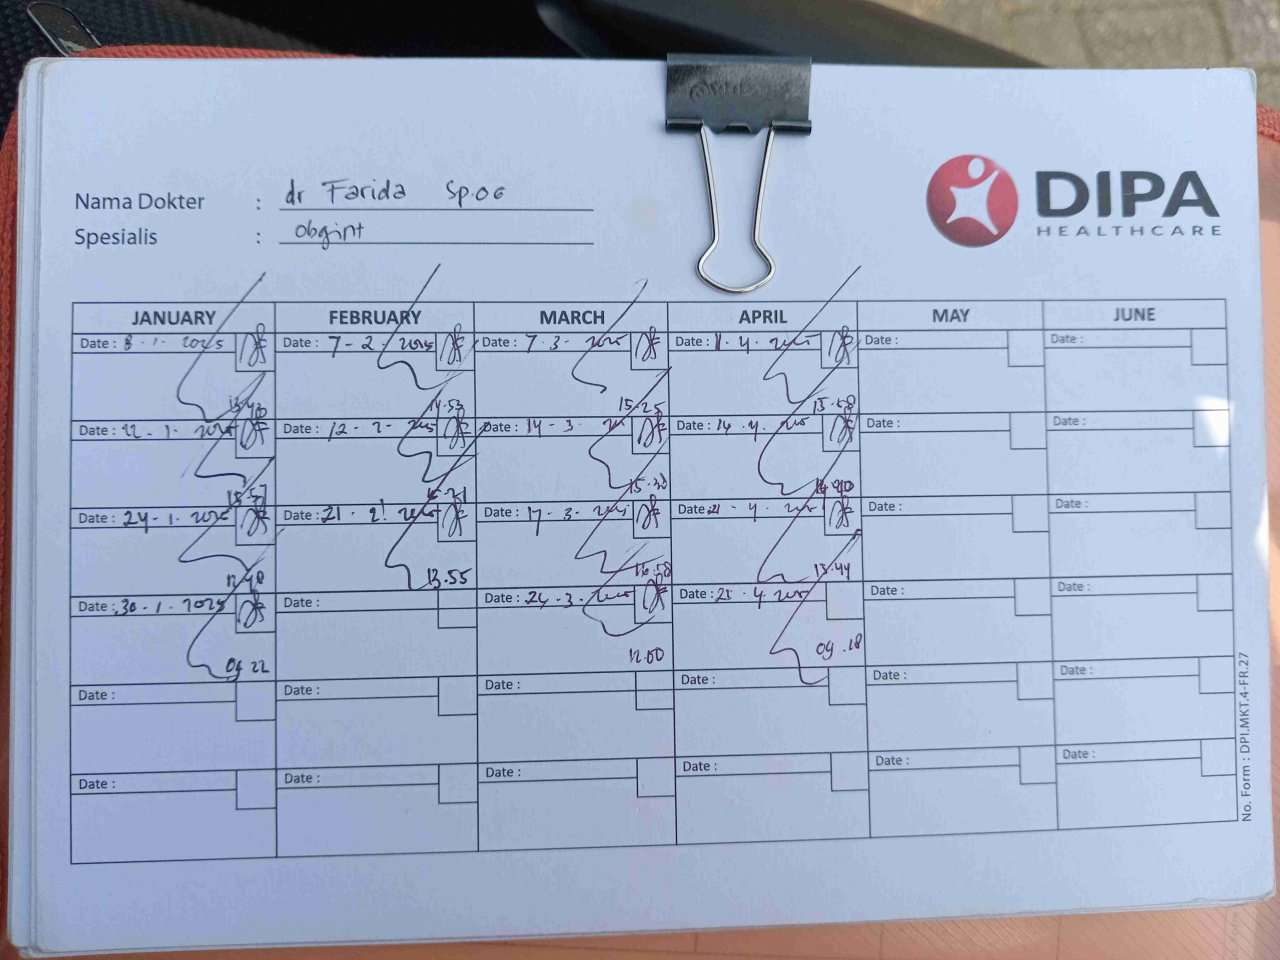 DIPA
HEALTHCARE
Nama Dokter : dr Farida Sp.OG
Spesialis : Obgint
JANUARY FEBRUARY MARCH APRIL MAY JUNE
Date : 8 - 1 - 2025 Date : 7 - 2 - 2025 Date : 7 - 3 - 2025 Date : . 4 . 2025 Date : Date :
13.40 14.53 15.25 13.58
Date : 22 - 1 - 2025 Date : 12 - 2 - 2025 Date : 14 - 3 - 2025 Date : 14 . 4 . 2025 Date : Date :
15.57 15.38
Date : 24 - 1 - 2025 Date : 21 - 2 - 2025 Date : 17 - 3 - 2025 Date : 21 - 4 - 2025 Date : Date :
12.48 13.55 16.58 13.44
Date : 30 - 1 - 2025 Date : Date : 24 - 3 - 2025 Date : 25 . 4 . 2025 Date : Date :
09.22 12.00 09.18
Date : Date : Date : Date : Date : Date :
Date : Date : Date : Date : Date : Date :
No. Form : DPI.MKT.4-FR.27